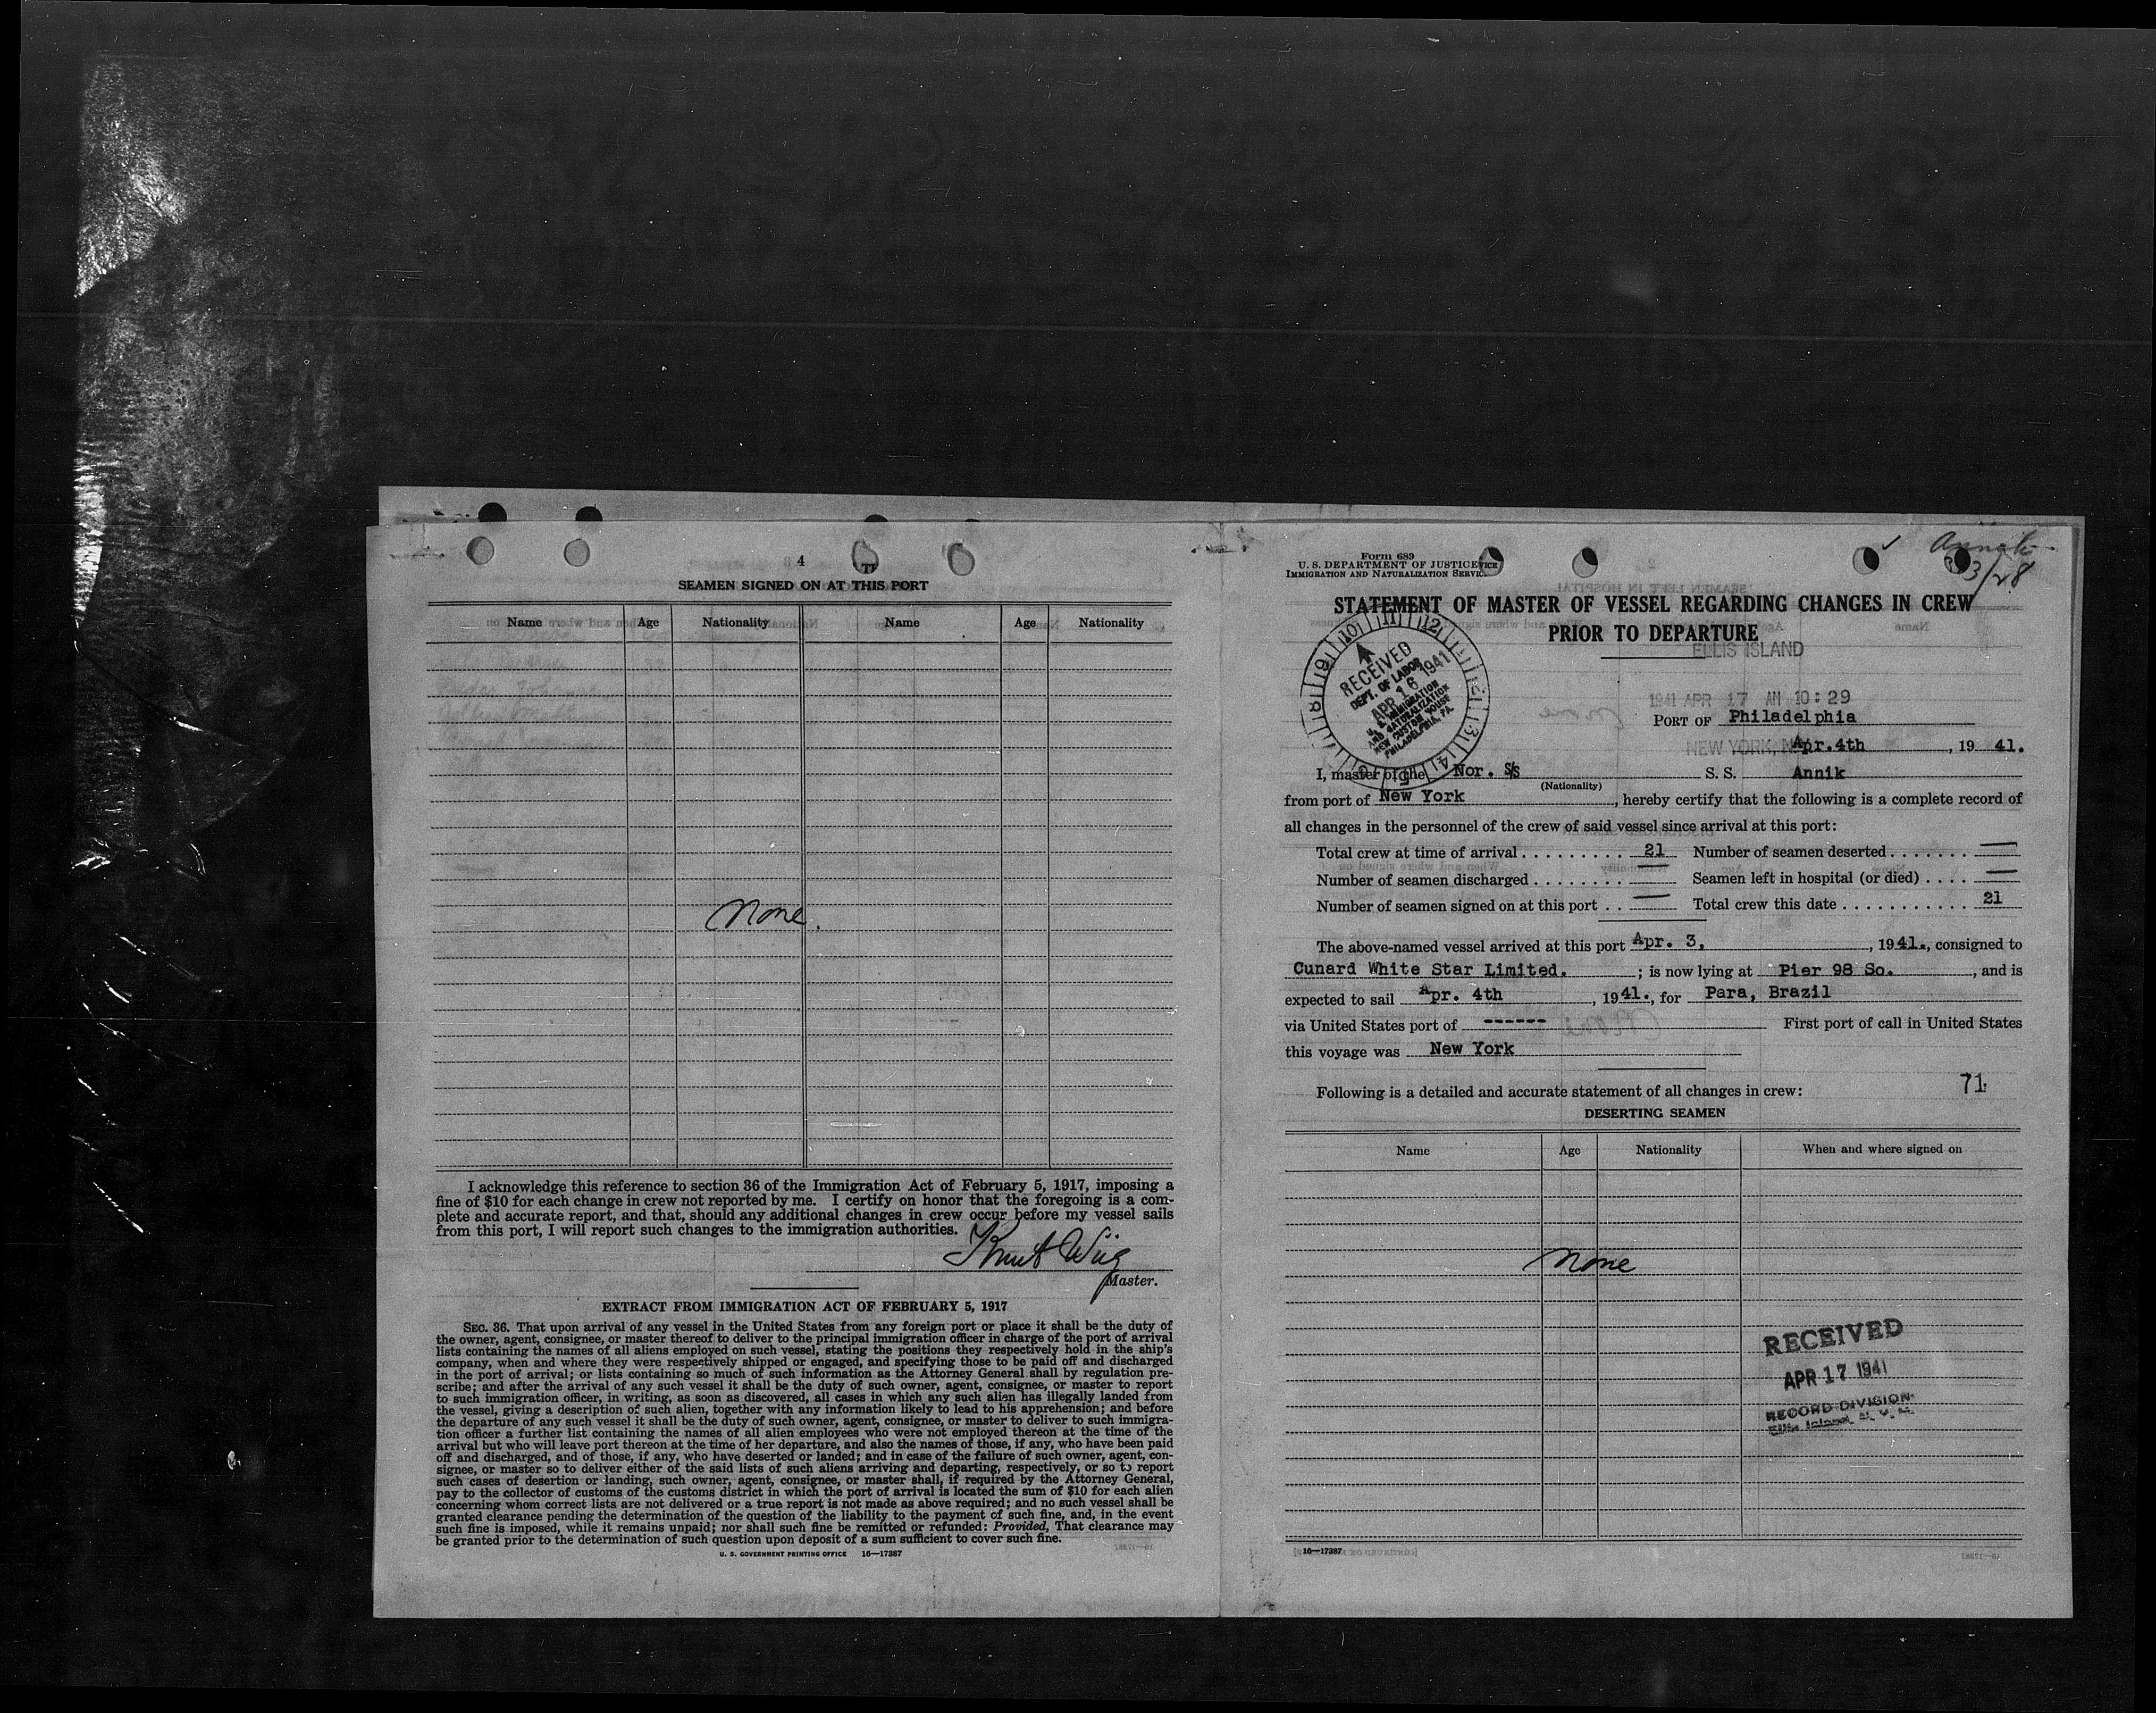 4
SEAMEN SIGNED ON AT THIS PORT
Name Age Nationality Name Age Nationality
None.
I acknowledge this reference to section 36 of the Immigration Act of February 5, 1917, imposing a
fine of $10 for each change in crew not reported by me. I certify on honor that the foregoing is a com-
plete and accurate report, and that, should any additional changes in crew occur before my vessel sails
from this port, I will report such changes to the immigration authorities.
Knut Wiig
Master.
EXTRACT FROM IMMIGRATION ACT OF FEBRUARY 5, 1917
SEC. 36. That upon arrival of any vessel in the United States from any foreign port or place it shall be the duty of
the owner, agent, consignee, or master thereof to deliver to the principal immigration officer in charge of the port of arrival
lists containing the names of all aliens employed on such vessel, stating the positions they respectively hold in the ship's
company, when and where they were respectively shipped or engaged, and specifying those to be paid off and discharged
in the port of arrival; or lists containing so much of such information as the Attorney General shall by regulation pre-
scribe; and after the arrival of any such vessel it shall be the duty of such owner, agent, consignee, or master to report
to such immigration officer, in writing, as soon as discovered, all cases in which any such alien has illegally landed from
the vessel, giving a description of such alien, together with any information likely to lead to his apprehension; and before
the departure of any such vessel it shall be the duty of such owner, agent, consignee, or master to deliver to such immigra-
tion officer a further list containing the names of all alien employees who were not employed thereon at the time of the
arrival but who will leave port thereon at the time of her departure, and also the names of those, if any, who have been paid
off and discharged, and of those, if any, who have deserted or landed; and in case of the failure of such owner, agent, con-
signee, or master so to deliver either of the said lists of such aliens arriving and departing, respectively, or so to report
such cases of desertion or landing, such owner, agent, consignee, or master shall, if required by the Attorney General,
pay to the collector of customs of the customs district in which the port of arrival is located the sum of $10 for each alien
concerning whom correct lists are not delivered or a true report is not made as above required; and no such vessel shall be
granted clearance pending the determination of the question of the liability to the payment of such fine, and, in the event
such fine is imposed, while it remains unpaid; nor shall such fine be remitted or refunded: Provided, That clearance may
be granted prior to the determination of such question upon deposit of a sum sufficient to cover such fine.
U. S. GOVERNMENT PRINTING OFFICE 16—17387
Form 689
U. S. DEPARTMENT OF JUSTICE
IMMIGRATION AND NATURALIZATION SERVICE
Annik
3/28
STATEMENT OF MASTER OF VESSEL REGARDING CHANGES IN CREW
PRIOR TO DEPARTURE
ELLIS ISLAND
RECEIVED
DEPT. OF LABOR
APR 16 1941
IMMIGRATION
AND NATURALIZATION
NEW CUSTOM HOUSE
PHILADELPHIA, PA.
1941 APR 17 AM 10:29
PORT OF Philadelphia
NEW YORK, N.Y.
Apr.4th, 1941.
I, master of the Nor. S/S S. S. Annik
(Nationality)
from port of New York, hereby certify that the following is a complete record of
all changes in the personnel of the crew of said vessel since arrival at this port:
Total crew at time of arrival . . . . . . . . . 21 Number of seamen deserted . . . . . . . —
Number of seamen discharged . . . . . . . . — Seamen left in hospital (or died) . . . . —
Number of seamen signed on at this port . . — Total crew this date . . . . . . . . . . . 21
The above-named vessel arrived at this port Apr. 3, , 1941., consigned to
Cunard White Star Limited. ; is now lying at Pier 98 So. , and is
expected to sail Apr. 4th , 1941., for Para, Brazil
via United States port of ------ First port of call in United States
this voyage was New York
71
Following is a detailed and accurate statement of all changes in crew:
DESERTING SEAMEN
Name Age Nationality When and where signed on
None
RECEIVED
APR 17 1941
RECORD DIVISION
Ellis Island, N. Y. H.
16—17387